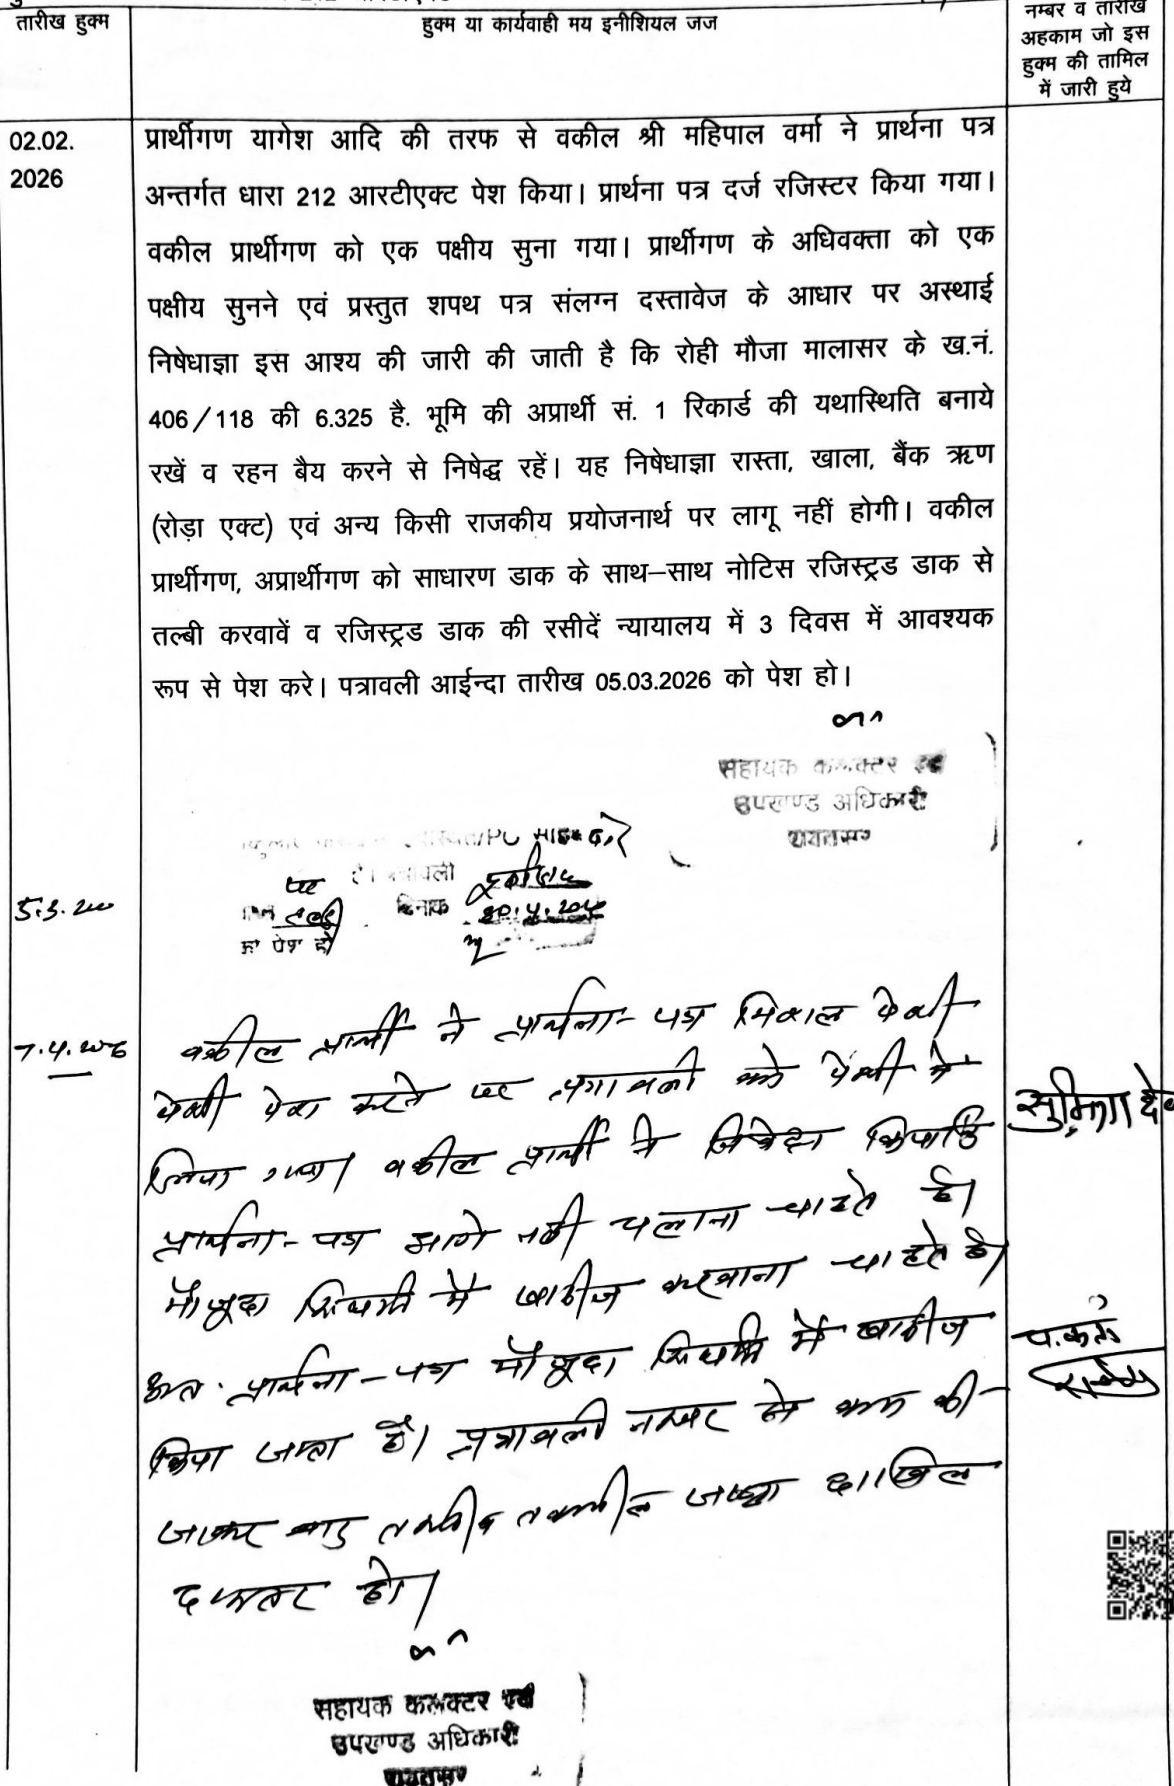 तारीख हुक्म
हुक्म या कार्यवाही मय इनीशियल जज
नम्बर व तारीख
अहकाम जो इस
हुक्म की तामिल
में जारी हुये
02.02.
2026
प्रार्थीगण यागेश आदि की तरफ से वकील श्री महिपाल वर्मा ने प्रार्थना पत्र
अन्तर्गत धारा 212 आरटीएक्ट पेश किया। प्रार्थना पत्र दर्ज रजिस्टर किया गया।
वकील प्रार्थीगण को एक पक्षीय सुना गया। प्रार्थीगण के अधिवक्ता को एक
पक्षीय सुनने एवं प्रस्तुत शपथ पत्र संलग्न दस्तावेज के आधार पर अस्थाई
निषेधाज्ञा इस आश्य की जारी की जाती है कि रोही मौजा मालासर के ख.नं.
406/118 की 6.325 है. भूमि की अप्रार्थी सं. 1 रिकार्ड की यथास्थिति बनाये
रखें व रहन बैय करने से निषेद्ध रहें। यह निषेधाज्ञा रास्ता, खाला, बैंक ऋण
(रोड़ा एक्ट) एवं अन्य किसी राजकीय प्रयोजनार्थ पर लागू नहीं होगी। वकील
प्रार्थीगण, अप्रार्थीगण को साधारण डाक के साथ–साथ नोटिस रजिस्ट्रड डाक से
तल्बी करवावें व रजिस्ट्रड डाक की रसीदें न्यायालय में 3 दिवस में आवश्यक
रूप से पेश करे। पत्रावली आईन्दा तारीख 05.03.2026 को पेश हो।
सहायक कलक्टर एवं
उपखण्ड अधिकारी
दिनाक
पेश हो
वकील प्रार्थी ने प्रार्थना-पत्र मिशल पेशी
पेशी पेश करने पर पत्रावली को पेशी में
लिया गया। वकील प्रार्थी ने निवेदन किया कि
प्रार्थना-पत्र आगे नही चलाना चाहते है।
मौजूदा स्थिति में खारीज करवाना चाहते है।
अत. प्रार्थना-पत्र मौजूदा स्थिति में खारीज
किया जाता है। पत्रावली नम्बर से कम की
जाकर बाद तकमील जाब्ता दाखिल
दफ्तर हो।
सहायक कलक्टर एवं
उपखण्ड अधिकारी